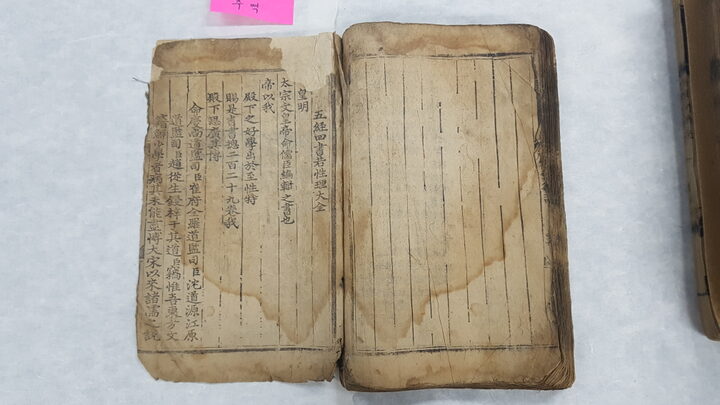 주역
五經四書若性理大全
皇明
太宗文皇帝命儒臣編輯之書也
帝以我
殿下之好學出於至性特
賜是書書摠二百二十九卷我
殿下思廣其傳
命慶尚道監司臣崔府全羅道監司臣沈道源江原
道監司臣趙從生鋟梓于其道臣竊惟吾東方文
籍鮮少學者病其未能盡博大宋以來諸儒之說